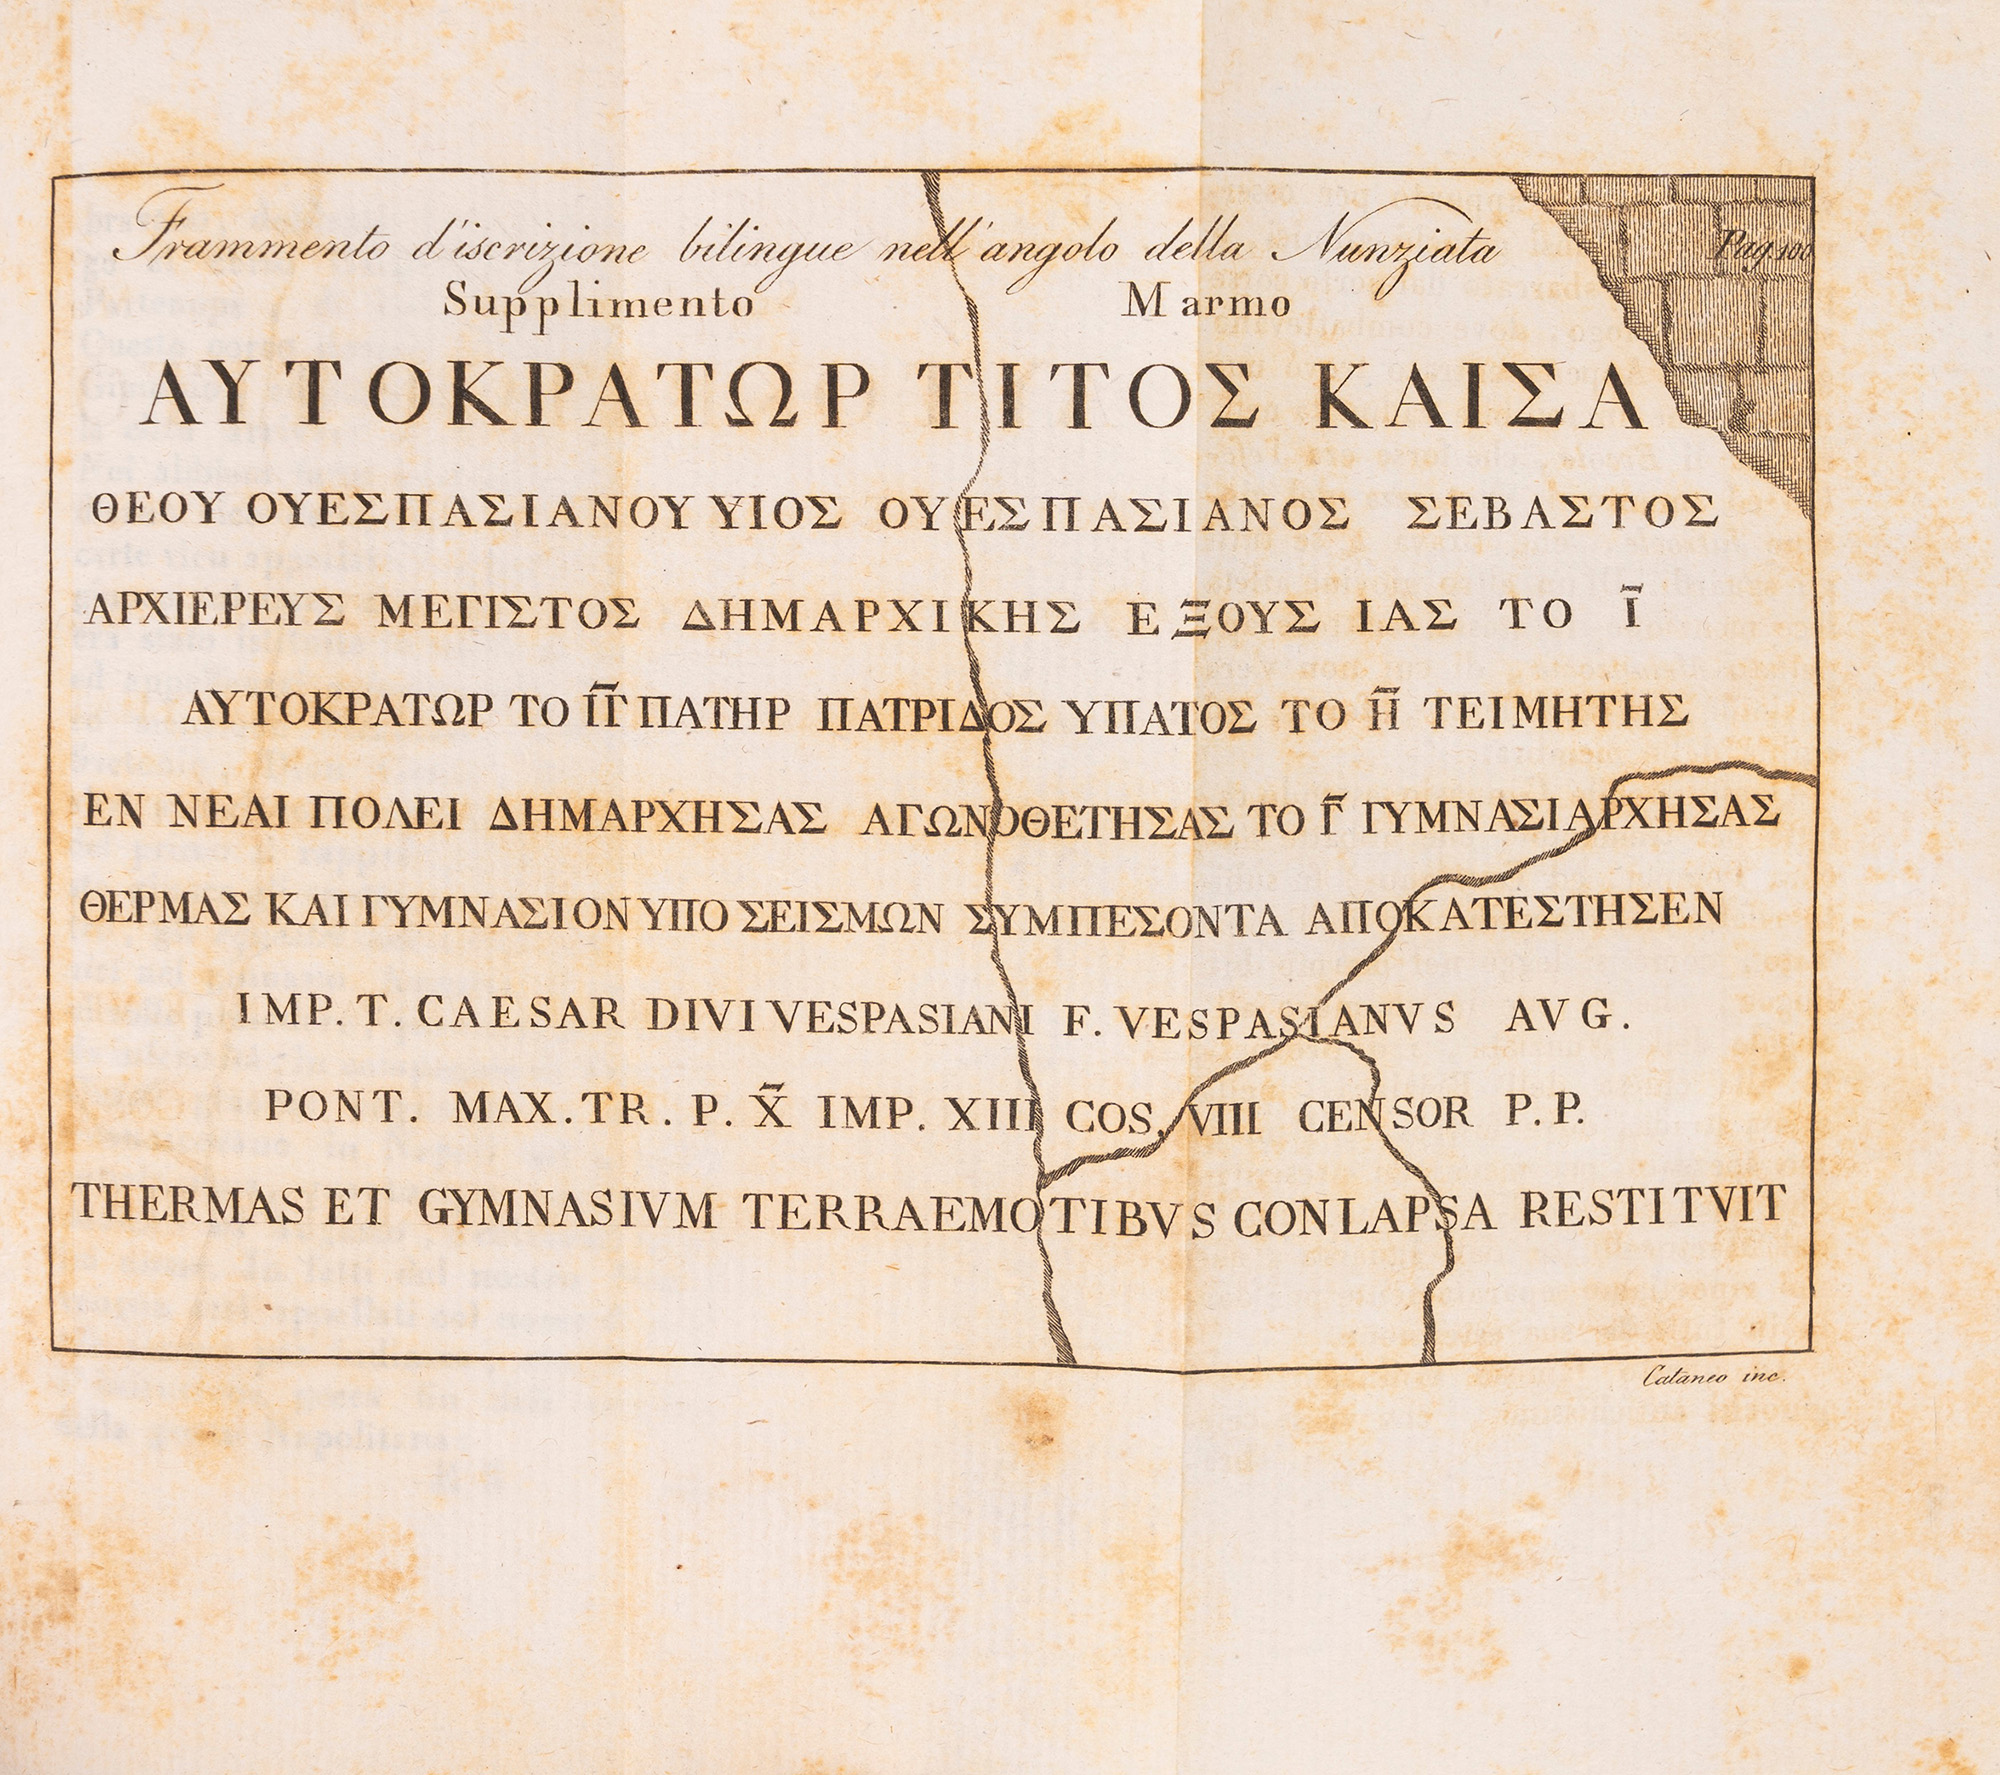 Frammento d'iscrizione bilingue nell'angolo della Nunziata Pag. 100
Supplimento Marmo
ΑΥΤΟΚΡΑΤΩΡ ΤΙΤΟΣ ΚΑΙΣΑ
ΘΕΟΥ ΟΥΕΣΠΑΣΙΑΝΟΥ ΥΙΟΣ ΟΥΕΣΠΑΣΙΑΝΟΣ ΣΕΒΑΣΤΟΣ
ΑΡΧΙΕΡΕΥΣ ΜΕΓΙΣΤΟΣ ΔΗΜΑΡΧΙΚΗΣ ΕΞΟΥΣ ΙΑΣ ΤΟ Ι̅
ΑΥΤΟΚΡΑΤΩΡ ΤΟ Ι̅Γ̅ ΠΑΤΗΡ ΠΑΤΡΙΔΟΣ ΥΠΑΤΟΣ ΤΟ Η̅ ΤΕΙΜΗΤΗΣ
ΕΝ ΝΕΑΙ ΠΟΛΕΙ ΔΗΜΑΡΧΗΣΑΣ ΑΓΩΝΟΘΕΤΗΣΑΣ ΤΟ Γ̅ ΓΥΜΝΑΣΙΑΡΧΗΣΑΣ
ΘΕΡΜΑΣ ΚΑΙ ΓΥΜΝΑΣΙΟΝ ΥΠΟ ΣΕΙΣΜΩΝ ΣΥΜΠΕΣΟΝΤΑ ΑΠΟΚΑΤΕΣΤΗΣΕΝ
IMP. T. CAESAR DIVI VESPASIANI F. VESPASIANVS AVG.
PONT. MAX. TR. P. X̅ IMP. XIII COS. VIII CENSOR P. P.
THERMAS ET GYMNASIVM TERRAEMOTIBVS CONLAPSA RESTITVIT
Cataneo inc.